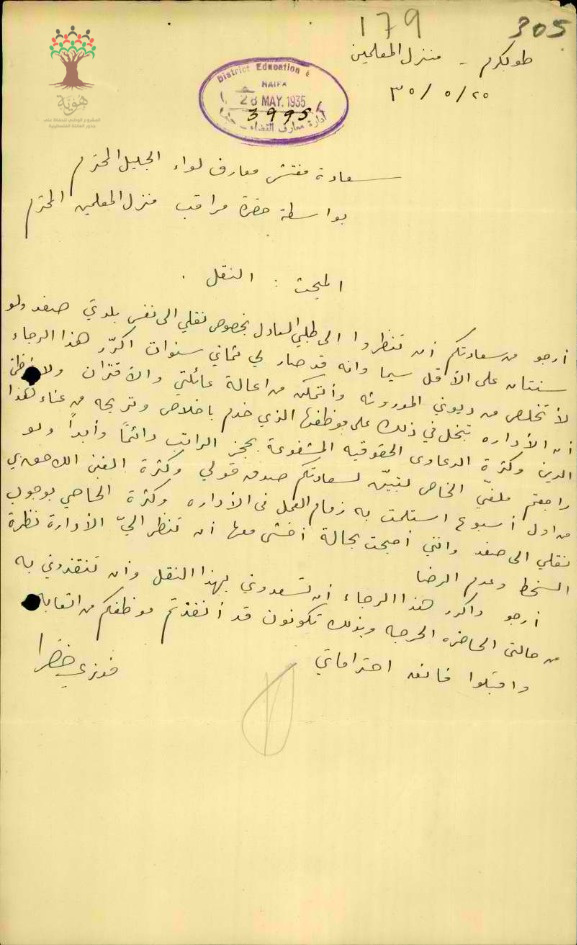 179
305
طولكرم - منزل المعلمين
٣٥/٥/٢٥
District Education
HAIFA
28 MAY. 1935
3995
هوية
سعادة مفتش معارف لواء الجليل المحترم
بواسطة حضرة مراقب منزل المعلمين المحترم
المبحث : النقل .
أرجو من سعادتكم أن تنظروا الى طلبي العادل بخصوص نقلي الى نفس بلدتي صفد ولو
سنتان على الأقل سيما وانه قد صار لي ثماني سنوات اكرّر هذا الرجاء
لأتخلص من ديوني الموروثه وأتمكن من اعالة عائلتي والأقتران
أن الأداره تبخل في ذلك على موظفها الذي خدم باخلاص وتريحه من عناء هذا
الدين وكثرة الدعاوى الحقوقيه المشفوعة بحجز الراتب دائماً وأبداً ولو
راجعتم ملفي الخاص لتبيّن لسعادتكم صدق قولي وكثرة الغبن اللاحق بي
من اول أسبوع استلمت به زمام العمل في الأداره وكثرة الحاحي بوجوب
نقلي الى صفد وانني أصبحت بحالة أخشى معها أن تنظر اليّ الأدارة نظرة
السخط وعدم الرضا
أرجو واكرر هذا الرجاء أن تسعدوني بهذا النقل وأن تنقذوني به
من حالتي الحاضره الحرجه وبذلك تكونون قد أنقذتم موظفكم من اتعابه
واقبلوا فائق احتراماتي
فوزي خضرا